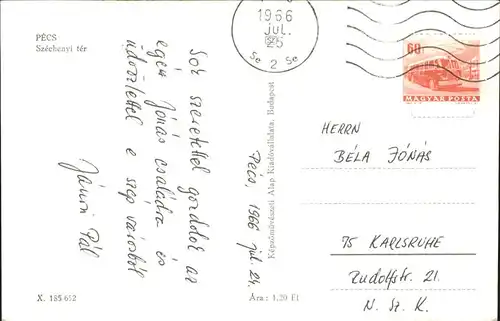 PÉCS
Széchenyi tér
Sok szeretettel gondolok az
egész Jónás családra és
üdvözlettel e szép városból
János Pál
Pécs, 1966 júl. 24.
X. 185 652
Képzőművészeti Alap Kiadóvállalata, Budapest
Ára: 1,20 Ft
1966
JUL.
25
Se 2 Se
60f
MAGYAR POSTA
HERRN
BÉLA JÓNÁS
75 KARLSRUHE
Rudolfstr. 21.
N. Sz. K.